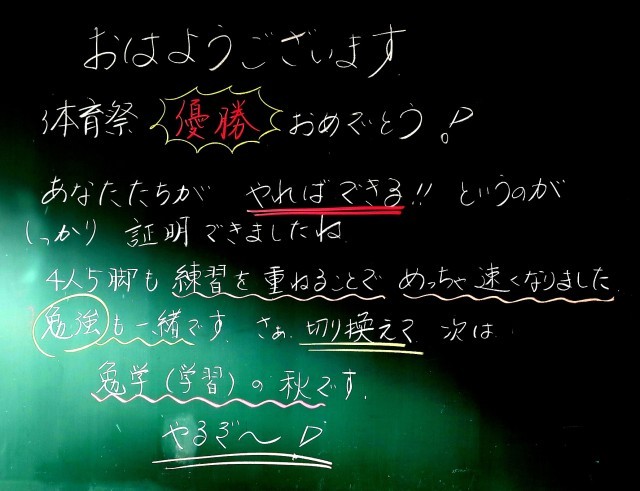 おはようございます
体育祭 優勝 おめでとう!
あなたたちが やればできる!! というのが
しっかり 証明できましたね
4人5脚も 練習を重ねることで めっちゃ速くなりました.
勉強も一緒です. さぁ. 切り換えて 次は
勉学(学習)の秋です.
やるぞ〜!